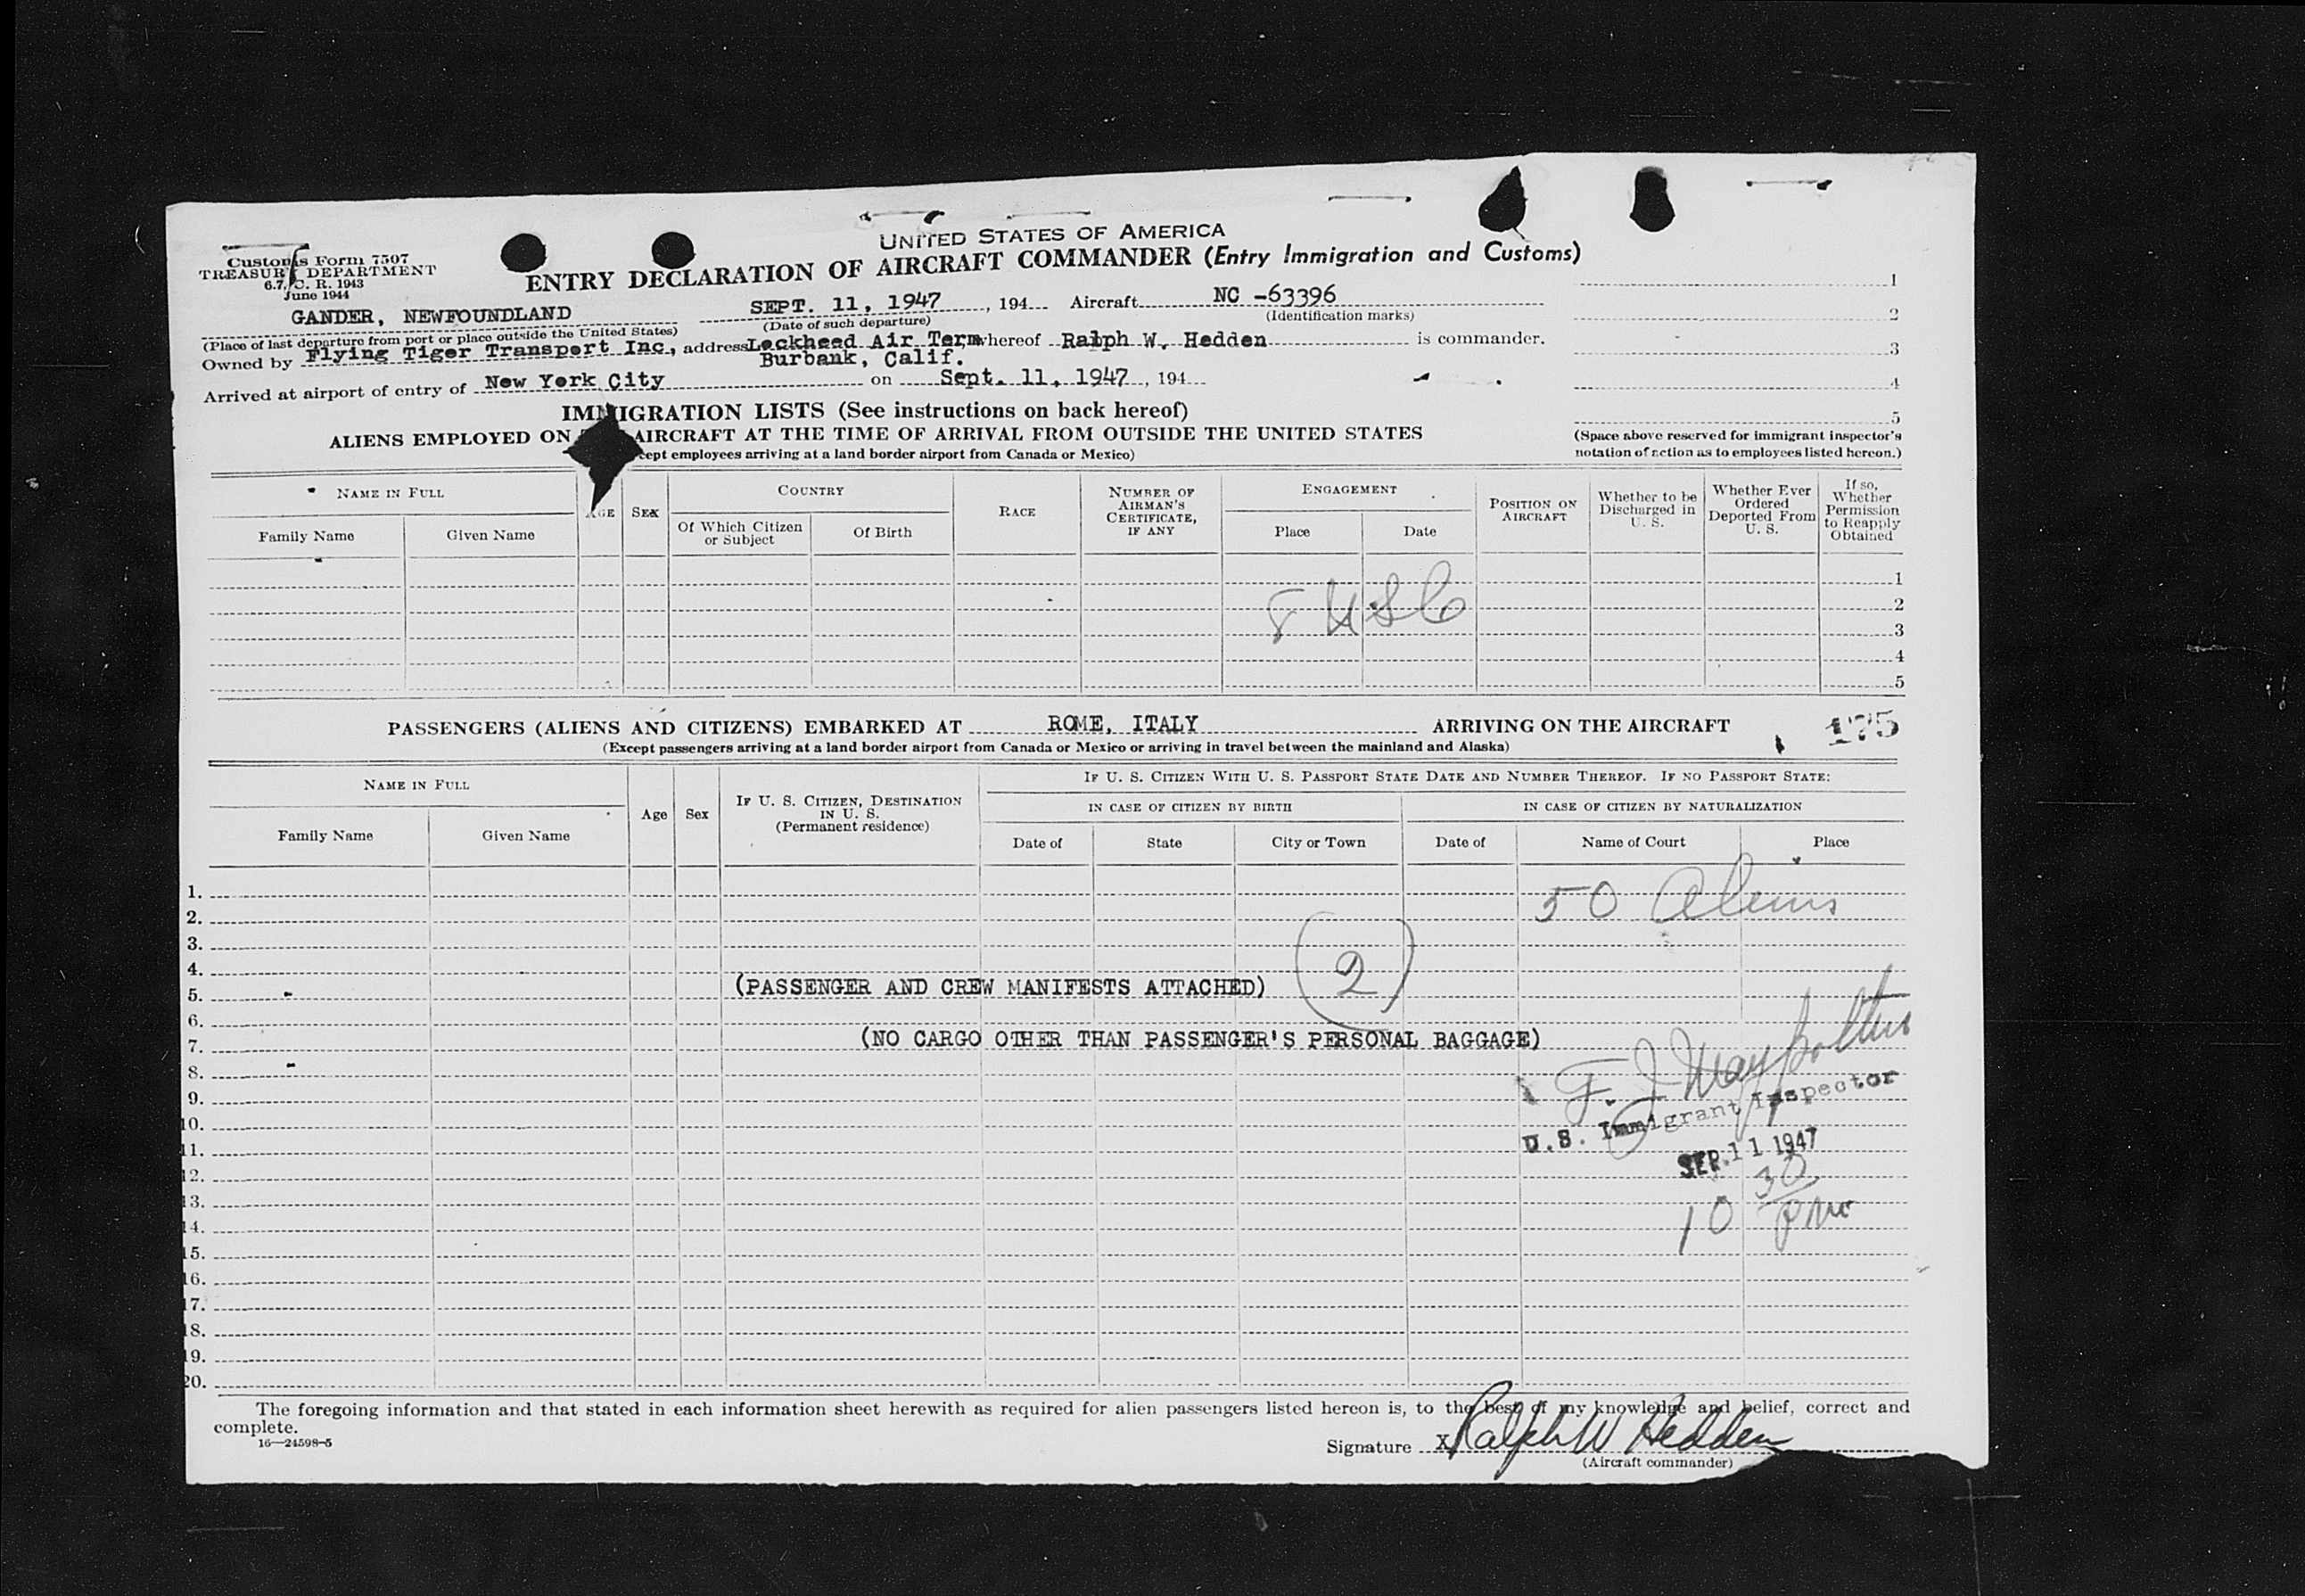 UNITED STATES OF AMERICA
ENTRY DECLARATION OF AIRCRAFT COMMANDER (Entry Immigration and Customs)
Customs Form 7507
TREASURY DEPARTMENT
6.7, C. R. 1943
June 1944
1
2
3
4
5
GANDER, NEWFOUNDLAND SEPT. 11, 1947, 194 Aircraft NC -63396
(Place of last departure from port or place outside the United States) (Date of such departure) (Identification marks)
Owned by Flying Tiger Transport Inc, address Lockheed Air Term whereof Ralph W. Hedden is commander.
Burbank, Calif.
Arrived at airport of entry of New York City on Sept. 11, 1947, 194
IMMIGRATION LISTS (See instructions on back hereof)
ALIENS EMPLOYED ON AIRCRAFT AT THE TIME OF ARRIVAL FROM OUTSIDE THE UNITED STATES
cept employees arriving at a land border airport from Canada or Mexico)
(Space above reserved for immigrant inspector's
notation of action as to employees listed hereon.)
NAME IN FULL
Family Name Given Name
AGE
SEX
COUNTRY
Of Which Citizen or Subject
Of Birth
RACE
NUMBER OF AIRMAN'S CERTIFICATE, IF ANY
ENGAGEMENT
Place Date
POSITION ON AIRCRAFT
Whether to be Discharged in U. S.
Whether Ever Ordered Deported From U. S.
If so, Whether Permission to Reapply Obtained
1
2
3
4
5
8 USC
PASSENGERS (ALIENS AND CITIZENS) EMBARKED AT ROME, ITALY ARRIVING ON THE AIRCRAFT 175
(Except passengers arriving at a land border airport from Canada or Mexico or arriving in travel between the mainland and Alaska)
NAME IN FULL
Family Name Given Name
Age
Sex
IF U. S. CITIZEN, DESTINATION IN U. S.
(Permanent residence)
IF U. S. CITIZEN WITH U. S. PASSPORT STATE DATE AND NUMBER THEREOF. IF NO PASSPORT STATE:
IN CASE OF CITIZEN BY BIRTH IN CASE OF CITIZEN BY NATURALIZATION
Date of State City or Town Date of Name of Court Place
1.
50 Aliens
2.
3.
4.
5. (PASSENGER AND CREW MANIFESTS ATTACHED) (2)
6.
7. (NO CARGO OTHER THAN PASSENGER'S PERSONAL BAGGAGE)
8.
9. F. J.
10. U.S. Immigrant Inspector
11. SEP 11 1947
12.
13. 10 30 PM
14.
15.
16.
17.
18.
19.
20.
The foregoing information and that stated in each information sheet herewith as required for alien passengers listed hereon is, to the best of my knowledge and belief, correct and
complete.
16—24598-5
Signature X Ralph W Hedden
(Aircraft commander)